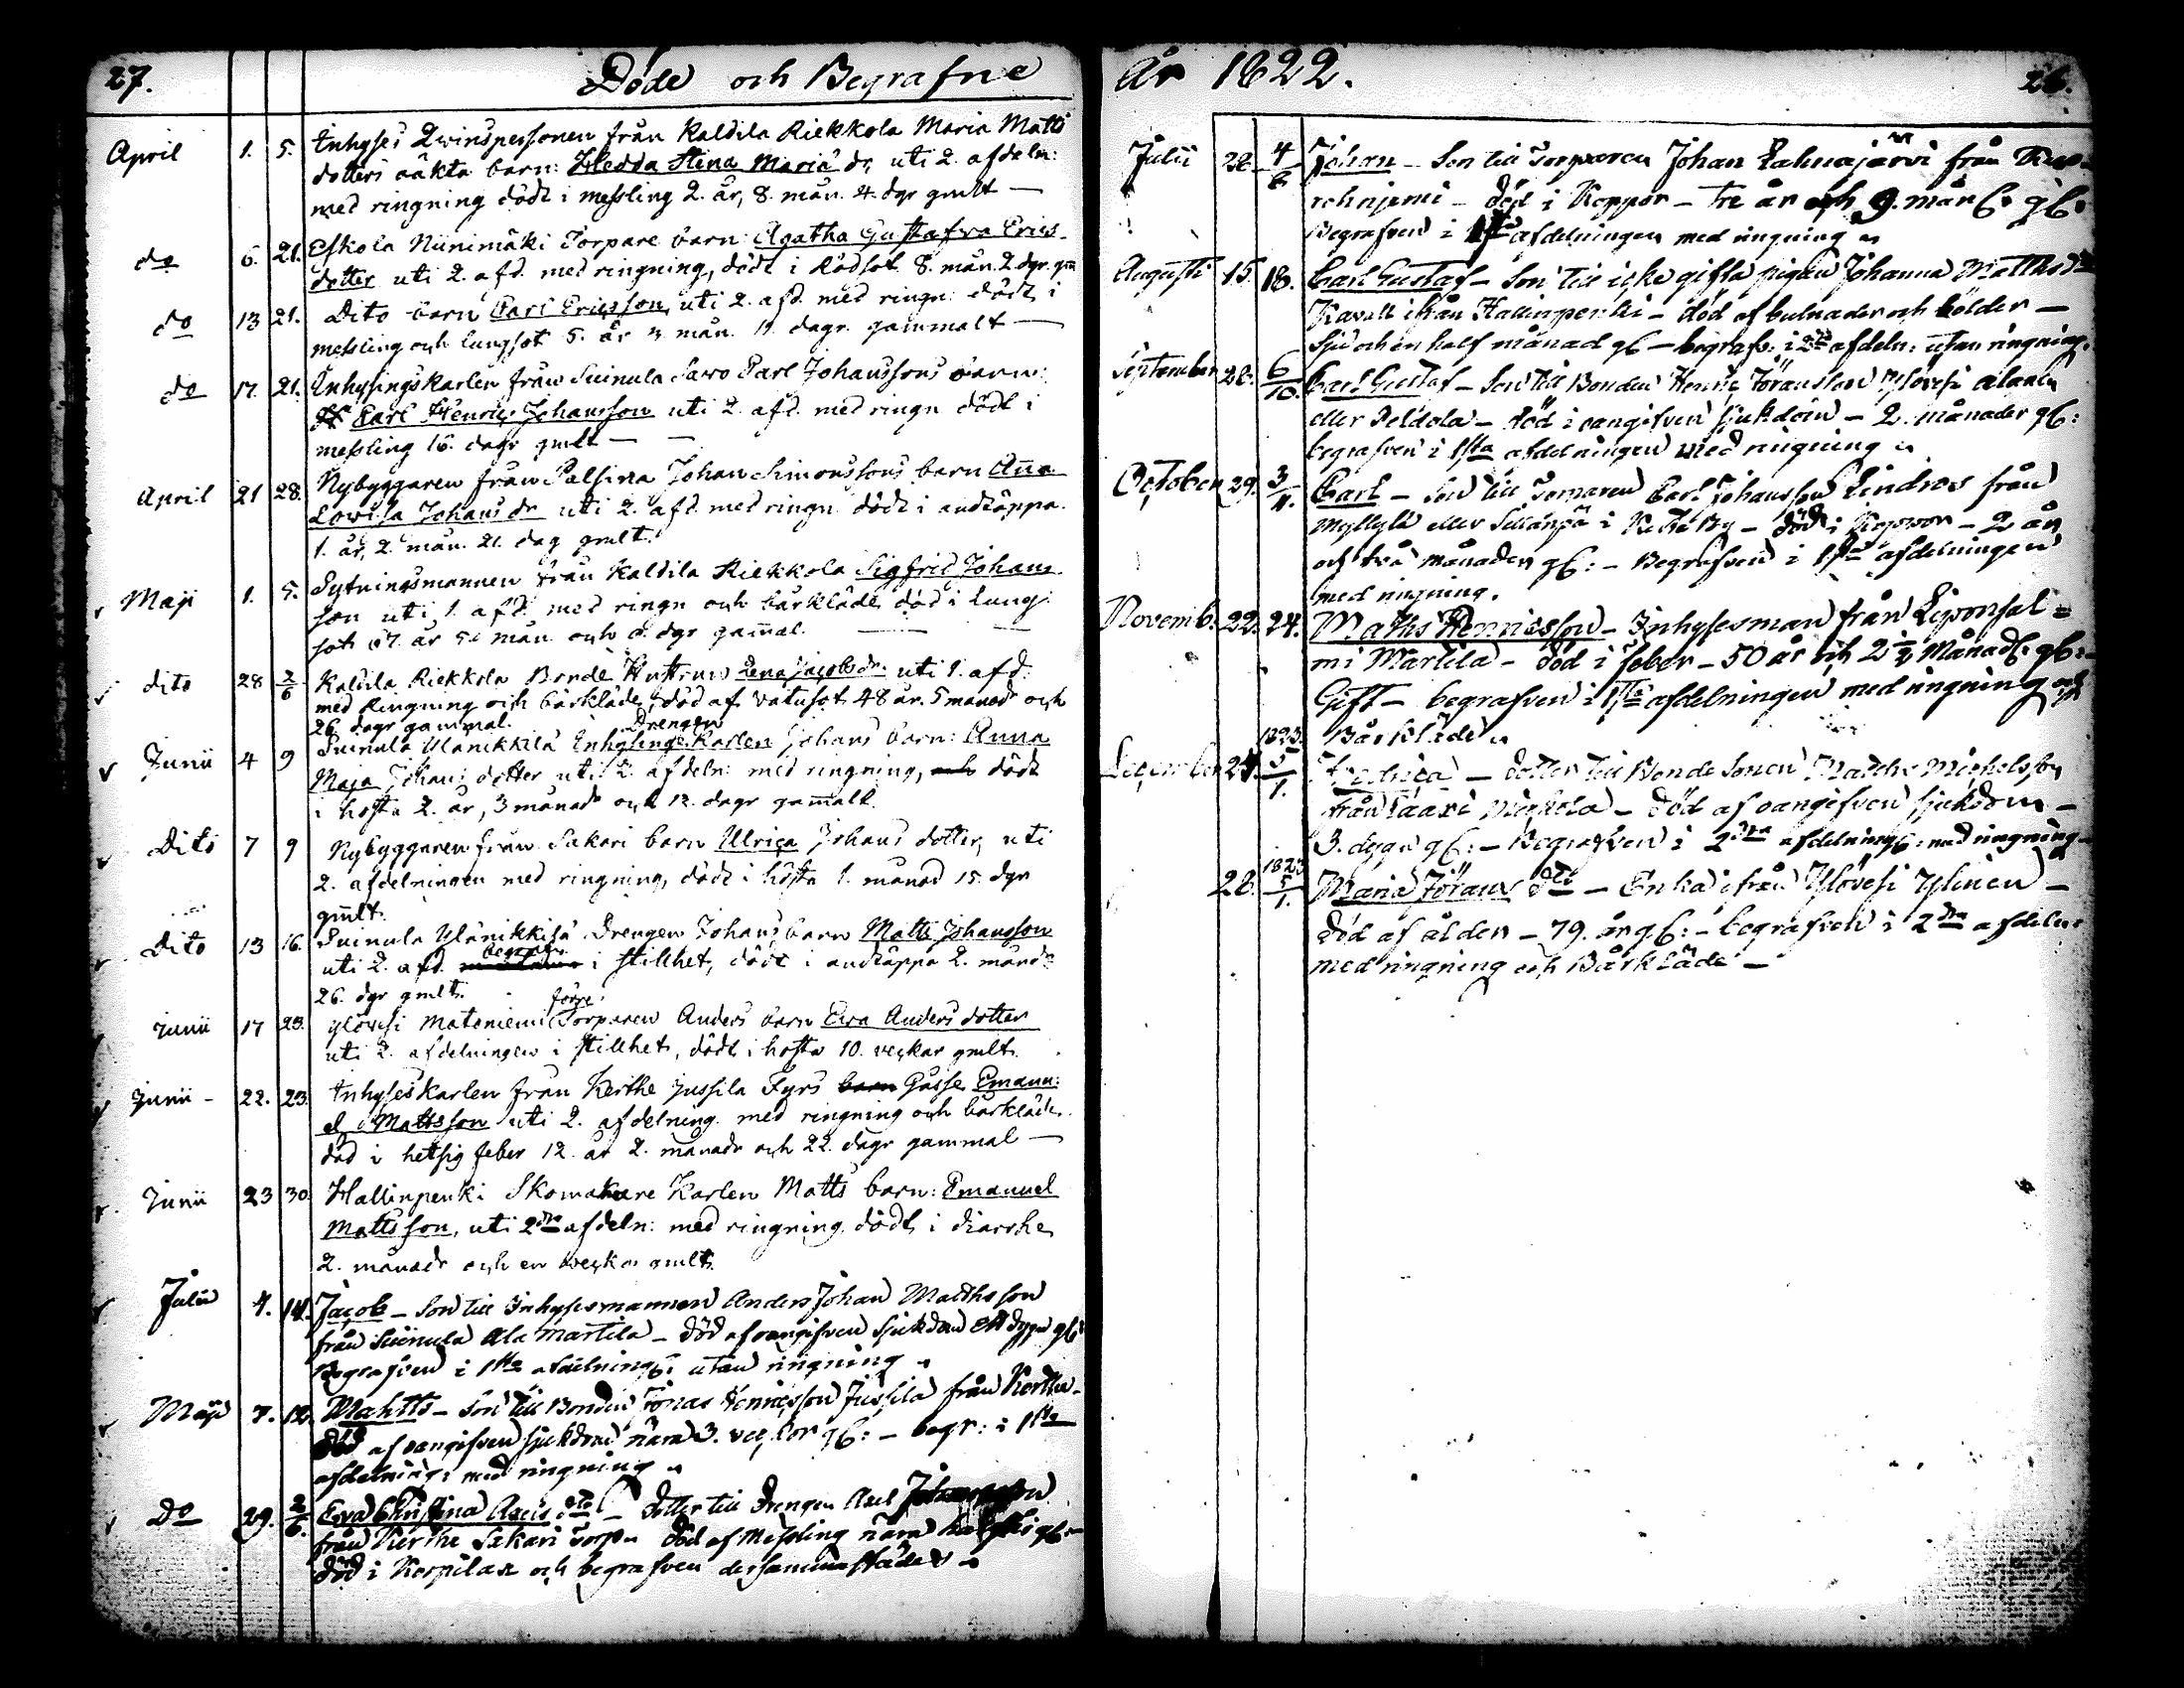 27.
Döde och Begrafne
April 1. 5. Inhyses Qwinspersonen från Kaldila Riekkola Maria Matts
dotters oäkta barn: Hedda Stina Mariæ dr, uti 2. afdeln:
med ringning dödt i messling 2. år, 8. mån. 4. dgr gmlt —
do 6. 21. Eskola Niinimäki Torpare barn: Agatha Gustafva Erics
dotter uti 2. afd. med ringning, dödt i Rödsot 8. mån. 2 dgr. gm
do 13 21. Dito barn Carl Ericsson, uti 2. afd. med ringn: dödt i
messling och lungsot 5. år 3 mån. 11. dagr. gammalt —
do 17. 21. Inhysingskarlen från Suinula Sawo Carl Johanssons barn:
Carl Henric Johansson uti 2. afd. med ringn dödt i
messling 16. dagr gmlt —
April 21 28. Nybyggaren från Palsina Johan Simonssons barn Anna
Lowisa Johans dr uti 2. afd. med ringn dödt i andtäppa.
1. år, 2. mån. 21. dag gmlt.
Maji 1. 5. Sytningsmannen från Kaldila Riekkola Sigfrid Johans
son uti 1. afd. med ringn och bårkläde, död i lung
sot 67. år 5. mån och dgr gamal.
dito 28 2/6 Kaldila Riekkola Bonde Hustrun Lena Jacobs dr. uti 1. afd.
med Ringning och bårkläde, död af vatusot 48 år. 5 månadr och
26 dagr gammal.
Drengen
Junii 4 9 Suinula Ylänikkilä Inhysings Karlen Johans barn: Anna
Maja Johans dotter uti 2. afdeln: med ringning, och dödt
i hosta 2. år, 3 månadr och 12. dagr gamalt.
Dito 7 9 Nybyggaren från Sakari barn Ulrica Johans dotter, uti
2. afdelningen med ringning, dödt i hosta 1. månad 15. dgr
gmlt.
Dito 13 16. Suinula Ylänikkilä Drengen Johans barn Matts Johansson
begrafn.
uti 2. afd. i stillhet, dödt i andtäppa 2. månadr
26. dgr gmlt.
förre
Junii 17 23. Ylövesi Mateniemi Torparen Anders barn Ewa Anders dotter
uti 2. afdelningen i stillhet, dödt i hosta 10. veckor gmlt.
Junii - 22. 23. Inhyses karlen från Kerthe Jussila Fyrs barn Gosse Emanu:
el Mattsson uti 2. afdelning. med ringning och bårkläde
död i hetsig feber 12. år 2. månadr och 22. dagr gammal —
Junii 23 30. Hallinpenki Skomakare Karlen Matts barn: Emanuel
Mattsson, uti 2dra afdeln: med ringning. dödt i diarrhe,
2. månadr och en vecka gmlt.
Julii 4. 14. Jacob - Son till Inhysesmannen Anders Johan Mathsson
från Suinula Ala Martila - död af oangifven sjukdom ett dygn gl:
Begrafven i 1sta afdelning: utan ringning.
Maji 7. 12. Mahtts - Son till Bonden Jonas Henricsson Jussila från Kerthe -
död af oangifven sjukdom nära 3. veckor gl: - begr: i 1sta
afdelning: med ringning.
Do 29. 2/6. Eva Christina Axels dtr - dotter till Drengen Axel Johansson
från Kerthe Sakari Torp. död af Messling nära
död i Korpilax och begrafven dersammastädes.
År 1822.
28.
Julii 28. 4/8 Johan - Son till Torparen Johan Lahnajärvi från
rohnjemi - död i Koppor - tre år och 9. mån gl:
Begrafven i 1sta afdelningen med ringning.
Augusti 15. 18. Carl Gustaf - Son till icke gifta pigan Johanna Matthsdr
Kavall ifrån Hallinpenki - död af bulnader och bölder -
Sju och en half månad gl - begrafv: i 2dra afdeln: utan ringning.
September 28. 6/10. Carl Gustaf - Son till Bonden Henric Jöransson Ylövesi Alanen
eller Peldola - död i oangifven sjukdom - 2. månader gl:
begrafven i 1sta afdelningen med ringning.
October 29. 3/11. Carl - Son till Carl Johansson Lindros från
Myllylä eller Sillanpä i Kethe By - död i Koppor - 2 år
och två månader gl: - Begrafven i 1sta afdelningen
med ringning.
Novemb. 22. 24. Maths Henricsson - Inhysesman från Liponsal=
mi Martila - död i feber - 50 år och 2½ Månad: gl:
Gift - begrafven i 1sta afdelningen med ringning och
Bårkläde.
December 24. 1823. 5/1. Fredrica - dotter till Bonde Sonen Maths Michelsson
från Saari Mickola - död af oangifven sjukdom -
3. dygn gl: - Begrafven i 2dra afdelning: med ringning -
28. 1823 5/1. Maria Jörans dtr - Enka ifrån Ylövesi Ylinen -
död af ålder - 79. år gl: - begrafven i 2dra afdeln:
med ringning och Bårkläde -